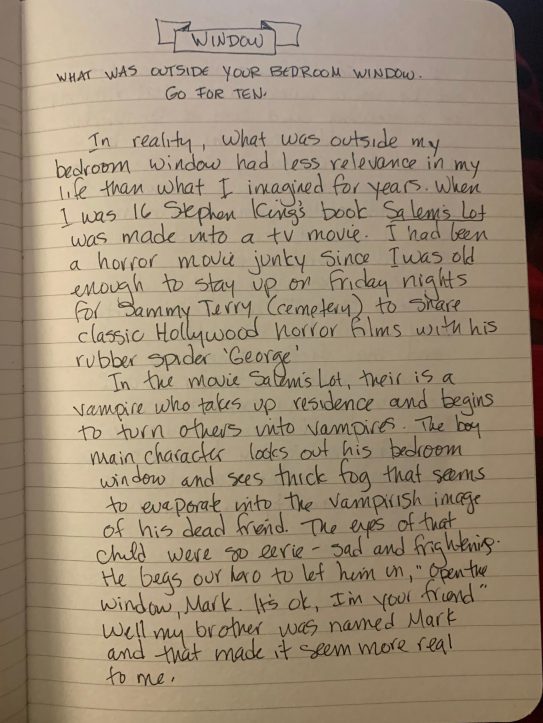 WINDOW
WHAT WAS OUTSIDE YOUR BEDROOM WINDOW.
GO FOR TEN.
In reality, what was outside my
bedroom window had less relevance in my
life than what I imagined for years. When
I was 16 Stephen King's book Salem's Lot
was made into a tv movie. I had been
a horror movie junky since I was old
enough to stay up on Friday nights
for Sammy Terry (cemetery) to share
classic Hollywood horror films with his
rubber spider 'George'
In the movie Salem's Lot, their is a
vampire who takes up residence and begins
to turn others into vampires. The boy
main character looks out his bedroom
window and sees thick fog that seems
to evaporate into the vampirish image
of his dead friend. The eyes of that
child were so eerie - sad and frightening.
He begs our hero to let him in, "Open the
window, Mark. It's ok, I'm your friend"
Well my brother was named Mark
and that made it seem more real
to me.